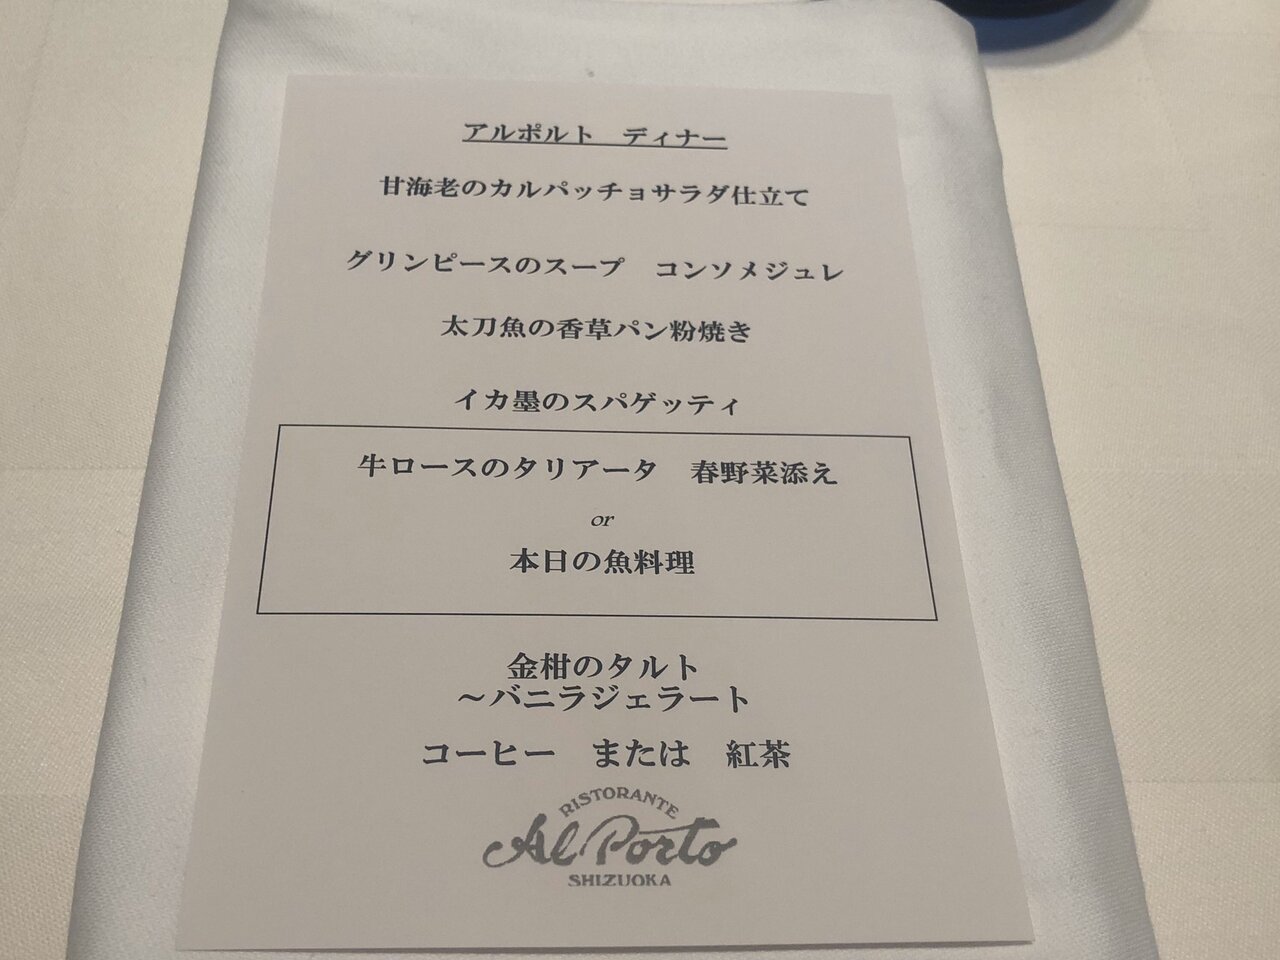 アルポルト　ディナー
甘海老のカルパッチョサラダ仕立て
グリンピースのスープ　コンソメジュレ
太刀魚の香草パン粉焼き
イカ墨のスパゲッティ
牛ロースのタリアータ　春野菜添え
or
本日の魚料理
金柑のタルト
～バニラジェラート
コーヒー　または　紅茶
RISTORANTE
Al Porto
SHIZUOKA